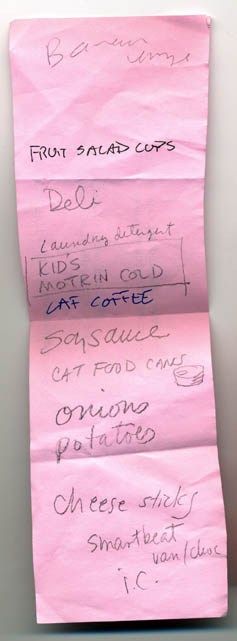 FRUIT SALAD CUPS
Deli
Laundry detergent
KID'S
MOTRIN COLD
CAF COFFEE
Soy sauce
CAT FOOD CANS
onions
potatoes
cheese sticks
smartbeat
van/choc
i.c.